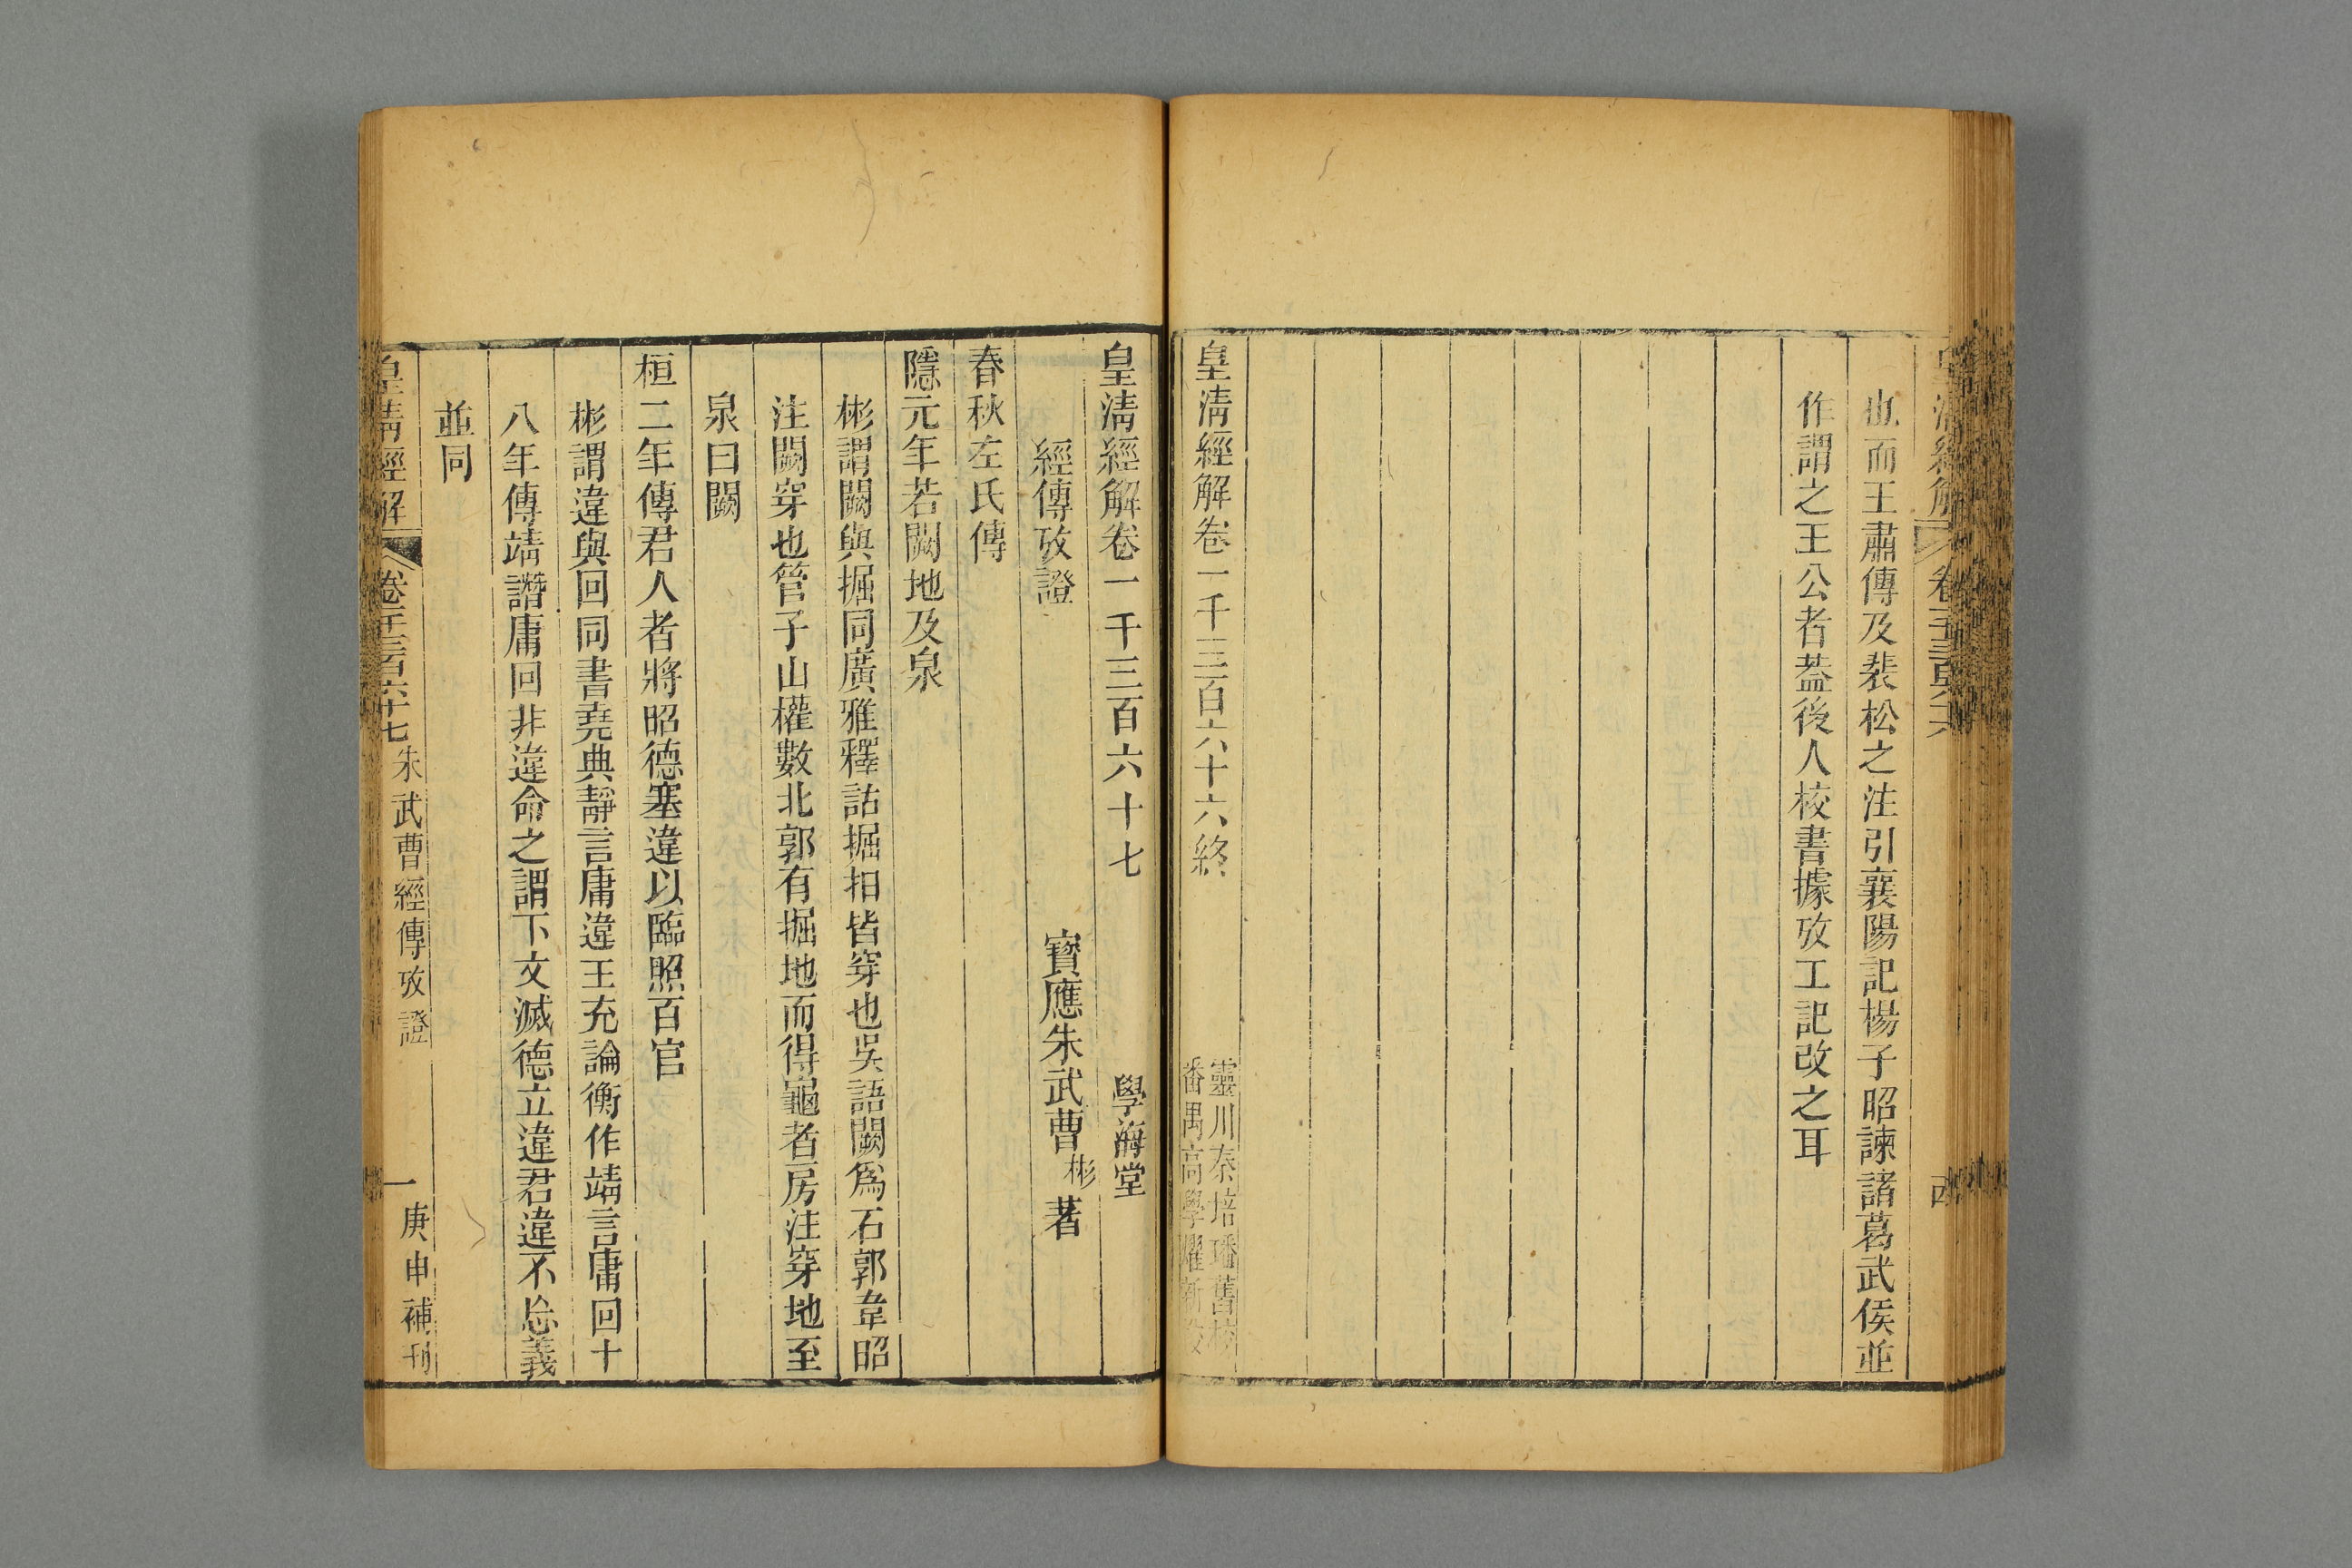 也而王肅傳及裴松之注引襄陽記楊子昭諫諸葛武侯並
作謂之王公者葢後人校書據攷工記改之耳
皇清經解卷一千三百六十六終
靈川秦培璠舊校
番禺高學燿新校
皇清經解卷一千三百六十七 學海堂
經傳攷證 寶應朱武曹彬著
春秋左氏傳
隱元年若闕地及泉
彬謂闕與掘同廣雅釋詁掘抇皆穿也吳語闕爲石郭韋昭
注闕穿也管子山權數北郭有掘地而得龜者房注穿地至
泉曰闕
桓二年傳君人者將昭德塞違以臨照百官
彬謂違與回同書堯典靜言庸違王充論衡作靖言庸回十
八年傳靖譖庸回非違命之謂下文滅德立違君違不忘義
並同
皇清經解 卷一千三百六十七 朱武曹經傳攷證 一 庚申補刊